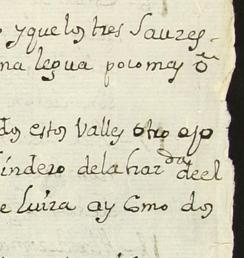 yque los tres Sauzes.
na legua poco mas ō
dos estos Valles otro ojo
lindero dela har da de el
e Luiza ay Como dos